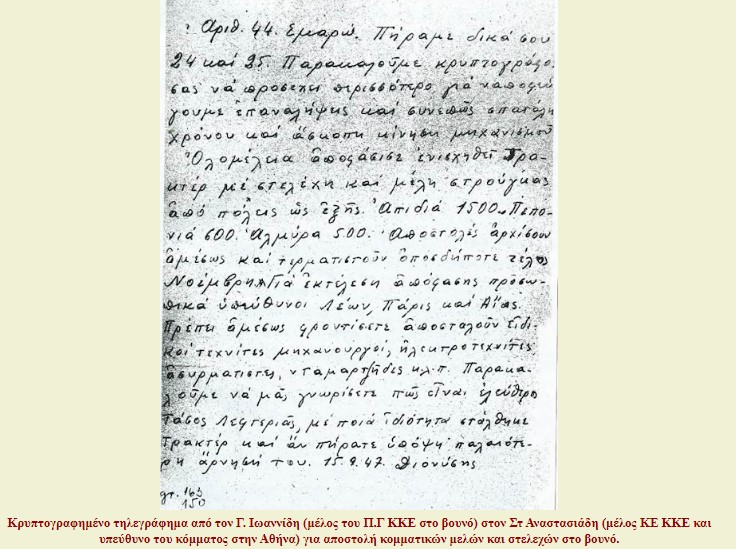 Αριθ. 44. Εμαρώ. Πήραμε δικά σου
24 και 25. Παρακαλούμε κρυπτογράφο
σας νά προσέχει περισσότερο γιά ν'αποφεύ
γουμε επαναλήψεις καί συνεπώς σπατάλη
χρόνου καί άσκοπη κίνηση μηχανισμού
Ολομέλεια αποφάσισε ενισχηθεί Τρα-
κτέρ μέ στελέχη καί μέλη στρούγκας
από πόλεις ως εξής. Απιδιά 1500. Πεπο-
νιά 600. Αλμύρα 500. Αποστολές αρχίσουν
αμέσως καί τερματιστούν οπωσδήποτε τέλος
Νοέμβρη. Γιά εκτέλεση απόφασης προσω-
πικά υπεύθυνοι Λέων, Πάρις καί Αίας.
Πρέπει αμέσως φροντίσετε αποσταλούν ειδι-
κοί τεχνίτες μηχανουργοί, ηλεκτροτεχνίτες
ασυρματιστές, νταμαρτζήδες κ.λ.π. Παρακα-
λούμε νά μάς γνωρίσετε πώς είναι ελεύθερος
Τάσος Λεφτεριάς, μέ ποιά ιδιότητα στάλθηκε
Τρακτέρ καί άν πήρατε υπόψη παλαιότε-
ρη άρνησή του. 15.9.47. Διονύσης
gr. 163
150
Κρυπτογραφημένο τηλεγράφημα από τον Γ. Ιωαννίδη (μέλος του Π.Γ ΚΚΕ στο βουνό) στον Στ Αναστασιάδη (μέλος ΚΕ ΚΚΕ και
υπεύθυνο του κόμματος στην Αθήνα) για αποστολή κομματικών μελών και στελεχών στο βουνό.